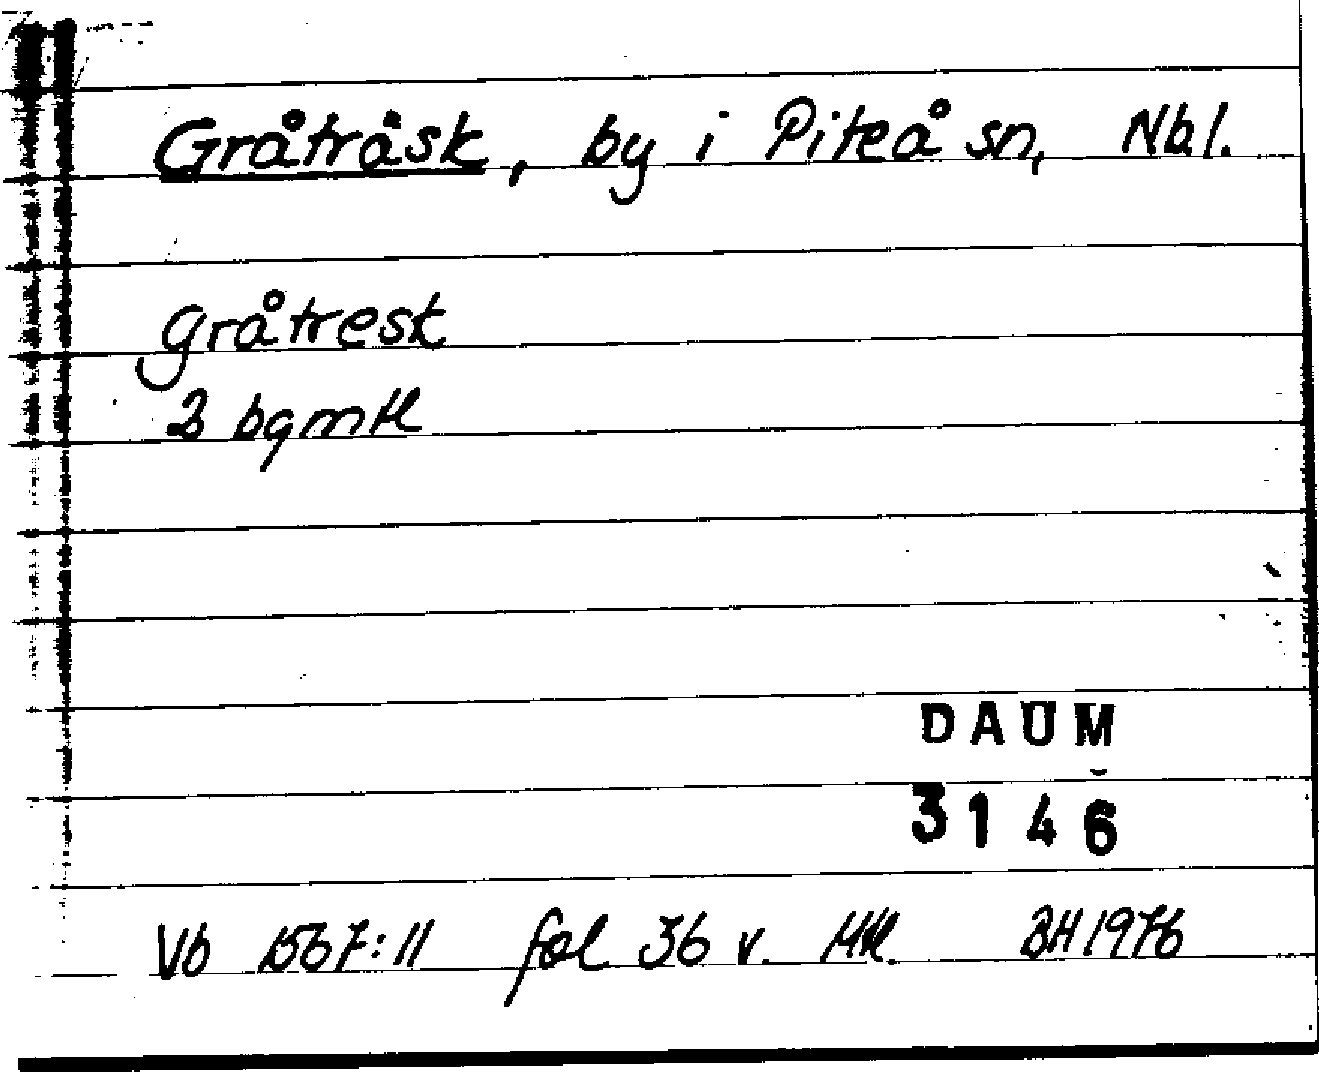 Gråträsk, by i Piteå sn, Nbl.
gråtresk
3 bqmtl
DAUM
3146
Vb 1567:11 fol 36 v. Mtl. BH 1976